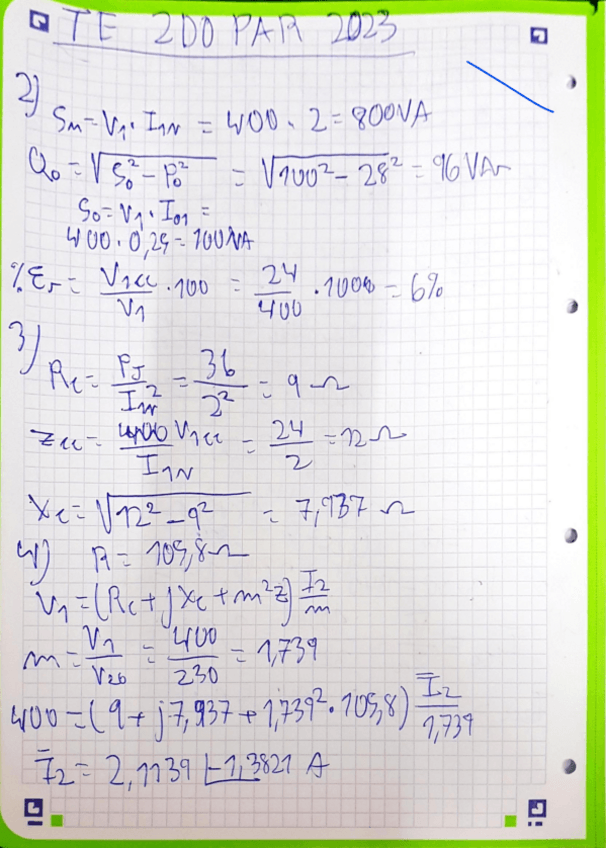 TE 2DO PAR 2023
2)
Sm = V₁ · I₁N = 400 · 2 = 800VA
Q₀ = √(S₀² - P₀²) = √(100² - 28²) = 96 VAr
S₀ = V₁ · I₀₁ =
400 · 0,25 = 100VA
%Er = V₁cc/V₁ · 100 = 24/400 · 100 = 6%
3)
Rc = PJ/I₁N² = 36/2² = 9 Ω
Zcc = V₁cc/I₁N = 24/2 = 12 Ω
Xc = √(12² - 9²) = 7,937 Ω
4) R = 105,8 Ω
V₁ = (Rc + jXc + m²z) I₂/m
m = V₁/V₂₀ = 400/230 = 1,739
400 = (9 + j7,937 + 1,739² · 105,8) I̅₂/1,739
I̅₂ = 2,1139 |-1,3821 A